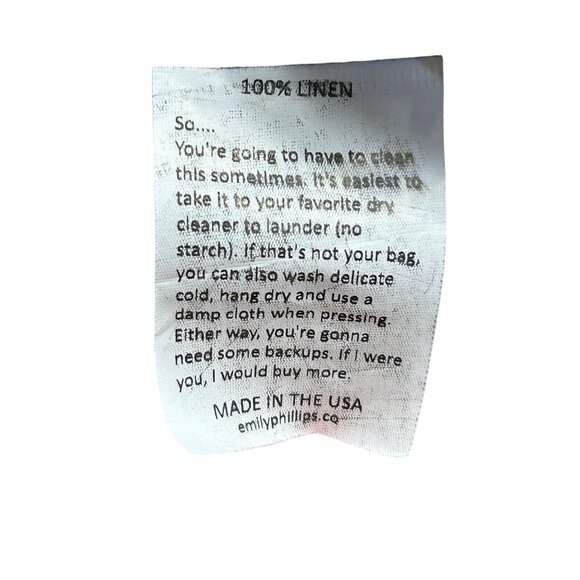 100% LINEN
So....
You're going to have to clean
this sometimes. It's easiest to
take it to your favorite dry
cleaner to launder (no
starch). If that's not your bag,
you can also wash delicate
cold, hang dry and use a
damp cloth when pressing.
Either way, you're gonna
need some backups. If I were
you, I would buy more.
MADE IN THE USA
emilyphillips.co